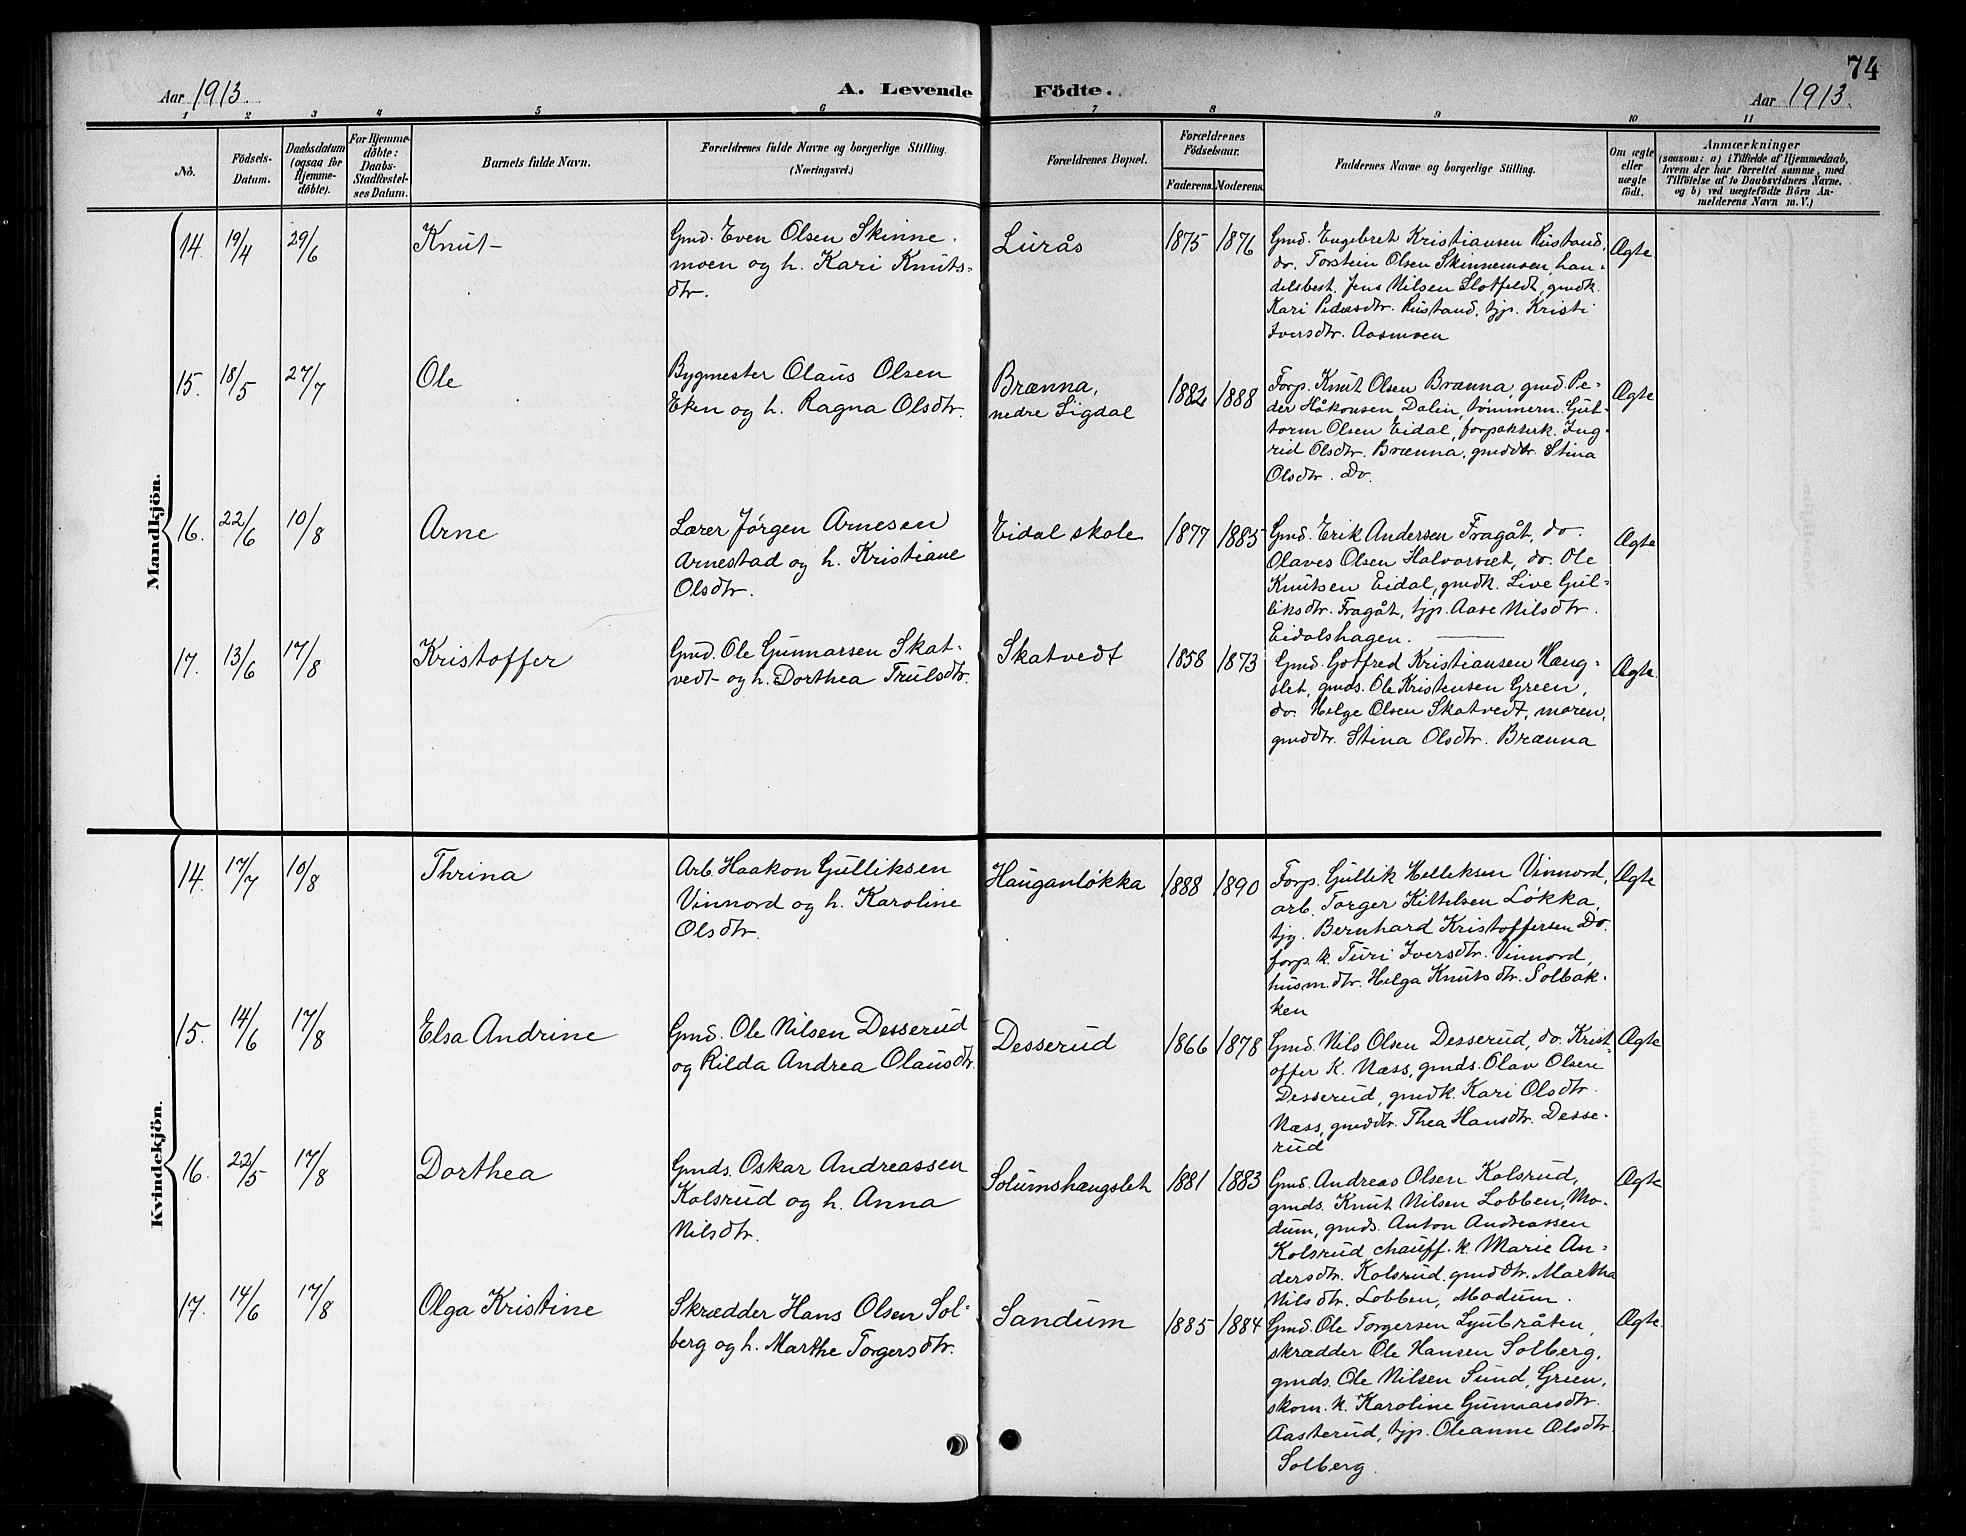 74
Aar 1913.
A. Levende Födte.
Aar 1913.
1 2 3 4 5 6 7 8 9 10 11
No.
Födsels-
Datum.
Daabsdatum
(ogsaa for
Hjemme-
döbte).
For Hjemme-
döbte:
Daabs-
Stadfæstel-
ses Datum.
Barnets fulde Navn.
Forældrenes fulde Navne og borgerlige Stilling.
(Næringsvei.)
Forældrenes Bopæl.
Forældrenes
Födselsaar.
Faderens. Moderens.
Faddernes Navne og borgerlige Stilling.
Om ægte
eller
uægte
födt.
Anmærkninger
(saasom: a) i Tilfælde af Hjemmedaab,
hvem der har forrettet samme, med
Tilföielse af to Daabsvidners Navne.
og b) ved uægtefödte Börn An-
melderens Navn m. V.)
Mandkjön.
14. 19/4 29/6 Knut
Gmd. Even Olsen Skinne-
moen og h. Kari Knuts-
dtr.
Lurås 1875 1876
Gmd. Engebret Kristiansen Rustand,
do. Torstein Olsen Skinnemoen, han-
delsbest. Jens Nilsen Slotfeldt, gmdk.
Kari Pedersdtr. Rustand, tjp. Kristi
Iversdtr. Aasmoen
Ægte
15. 18/5 27/7 Ole
Bygmester Olaus Olsen
Eken og h. Ragna Olsdtr.
Brænna,
nedre Sigdal
1882 1888
Forp. Knut Olsen Brænna, gmd. Pe-
der Håkonsen Dalin, tømmerm. Gut-
torm Olsen Eidal, forpakterk. Ing-
rid Olsdtr. Brænna, gmddtr. Stina
Olsdtr. Do.
Ægte
16. 22/6 10/8 Arne
Lærer Jørgen Arnesen
Arnestad og h. Kristiane
Olsdtr.
Eidal skole 1877 1885
Gmd. Erik Andersen Fragåt, do.
Olaves Olsen Halvorsset, do. Ole
Knutsen Eidal, gmdk. Live Gul-
liksdtr. Fragåt, tjp. Aase Nilsdtr.
Eidalshagen.
Ægte
17. 13/6 17/8 Kristoffer
Gmd. Ole Gunnarsen Skat-
vedt og h. Dorthea Trulsdtr.
Skatvedt 1858 1873
Gmd. Gotfred Kristiansen Hæng-
slet, gmds. Ole Kristensen Green,
do. Helge Olsen Skatvedt, moren,
gmddtr. Stina Olsdtr. Brænna
Ægte.
Kvindekjön.
14. 17/7 10/8 Thrina
Arb. Haakon Gulliksen
Vinnord og h. Karoline
Olsdtr.
Hauganløkka 1888 1890
Forp. Gullik Helliksen Vinnord,
arb. Torger Kittelsen Løkka,
tjg. Bernhard Kristoffersen Do.
forp. k. Turi Iversdtr. Vinnord,
husm. dtr. Helga Knutsdtr. Solbak-
ken
Ægte
15. 14/6 17/8 Elsa Andrine
Gmd. Ole Nilsen Desserud
og Rilda Andrea Olausdtr.
Desserud 1866 1878
Gmd. Nils Olsen Desserud, do. Krist-
offer K. Næss, gmds. Olav Olsen
Desserud, gmdk. Kari Olsdtr.
Næss, gmddtr. Thea Hansdtr. Desse-
rud
Ægte
16. 22/5 17/8 Dorthea
Gmds. Oskar Andreassen
Kolsrud og h. Anna
Nilsdtr.
Solumshængslet 1881 1883
Gmd. Andreas Olsen Kolsrud,
gmds. Knut Nilsen Lobben, Mo-
dum, gmds. Anton Andreassen
Kolsrud, chauff. k. Marie An-
dersdtr. Kolsrud, gmddtr. Martha
Nilsdtr. Lobben, Modum.
Ægte
17. 14/6 17/8 Olga Kristine
Skrædder Hans Olsen Sol-
berg og h. Marthe Torgersdtr.
Sandum 1885 1884
Gmd. Ole Torgersen Ljubråten,
skrædder Ole Hansen Solberg,
gmds. Ole Nilsen Sund, Green,
skom. k. Karoline Gunnarsdtr.
Aasterud, tjp. Oleanne Olsdtr.
Solberg.
Ægte.